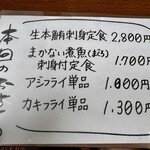 本日の
生本鮪刺身定食 2,800円
まかない煮魚(まぐろ)
刺身付定食 1,700円
アジフライ単品 1,000円
カキフライ単品 1,300円